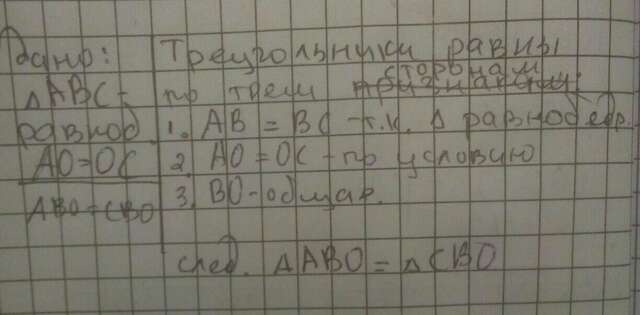 Дано:
△ABC -
равноб.
AO=OC
ABO=CBO
Треугольники равны
по трем сторонам
1. AB = BC - т.к. △ равнобедр.
2. AO = OC - по условию
3. BO - общая.
след. △ABO = △CBO